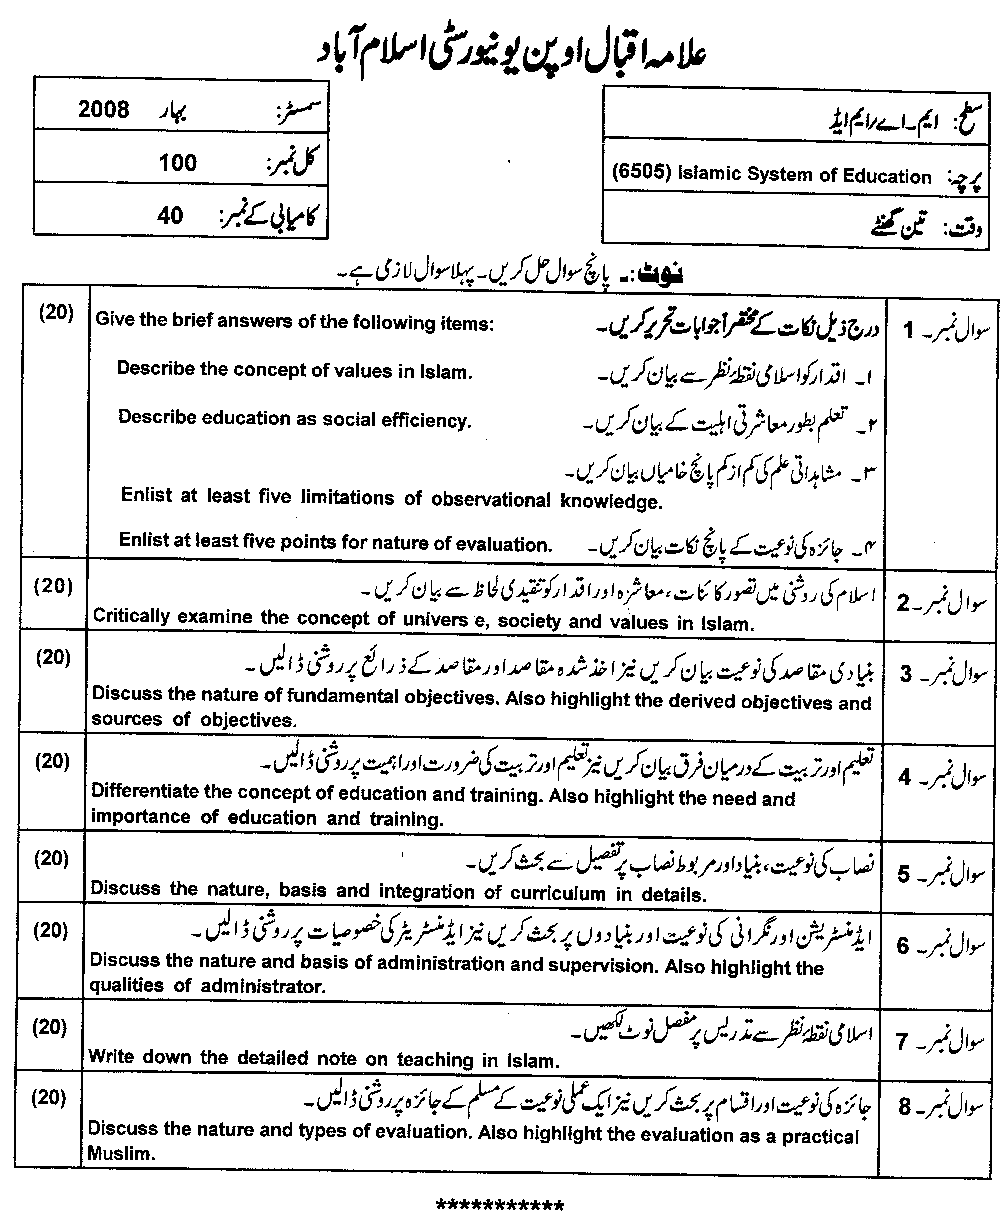 علامہ اقبال اوپن یونیورسٹی اسلام آباد
سطح: ایم۔اے/ایم ایڈ
پرچہ: (6505) Islamic System of Education
وقت: تین گھنٹے
سمسٹر: بہار 2008
کل نمبر: 100
کامیابی کے نمبر: 40
نوٹ:۔ پانچ سوال حل کریں۔ پہلا سوال لازمی ہے۔
سوال نمبر۔ 1 درج ذیل نکات کے مختصراً جوابات تحریر کریں۔ Give the brief answers of the following items: (20)
۱۔ اقدار کو اسلامی نقطۂ نظر سے بیان کریں۔ Describe the concept of values in Islam.
۲۔ تعلم بطور معاشرتی اہلیت کے بیان کریں۔ Describe education as social efficiency.
۳۔ مشاہداتی علم کی کم از کم پانچ خامیاں بیان کریں۔
Enlist at least five limitations of observational knowledge.
۴۔ جائزہ کی نوعیت کے پانچ نکات بیان کریں۔ Enlist at least five points for nature of evaluation.
سوال نمبر۔ 2 اسلام کی روشنی میں تصور کائنات، معاشرہ اور اقدار کو تنقیدی لحاظ سے بیان کریں۔ (20)
Critically examine the concept of univers e, society and values in Islam.
سوال نمبر۔ 3 بنیادی مقاصد کی نوعیت بیان کریں نیز اخذ شدہ مقاصد اور مقاصد کے ذرائع پر روشنی ڈالیں۔ (20)
Discuss the nature of fundamental objectives. Also highlight the derived objectives and
sources of objectives.
سوال نمبر۔ 4 تعلیم اور تربیت کے درمیان فرق بیان کریں نیز تعلیم اور تربیت کی ضرورت اور اہمیت پر روشنی ڈالیں۔ (20)
Differentiate the concept of education and training. Also highlight the need and
importance of education and training.
سوال نمبر۔ 5 نصاب کی نوعیت، بنیاد اور مربوط نصاب پر تفصیل سے بحث کریں۔ (20)
Discuss the nature, basis and integration of curriculum in details.
سوال نمبر۔ 6 ایڈمنسٹریشن اور نگرانی کی نوعیت اور بنیادوں پر بحث کریں نیز ایڈمنسٹریٹر کی خصوصیات پر روشنی ڈالیں۔ (20)
Discuss the nature and basis of administration and supervision. Also highlight the
qualities of administrator.
سوال نمبر۔ 7 اسلامی نقطۂ نظر سے تدریس پر مفصل نوٹ لکھیں۔ (20)
Write down the detailed note on teaching in Islam.
سوال نمبر۔ 8 جائزہ کی نوعیت اور اقسام پر بحث کریں نیز ایک عملی نوعیت کے مسلم کے جائزہ پر روشنی ڈالیں۔ (20)
Discuss the nature and types of evaluation. Also highlight the evaluation as a practical
Muslim.
***********